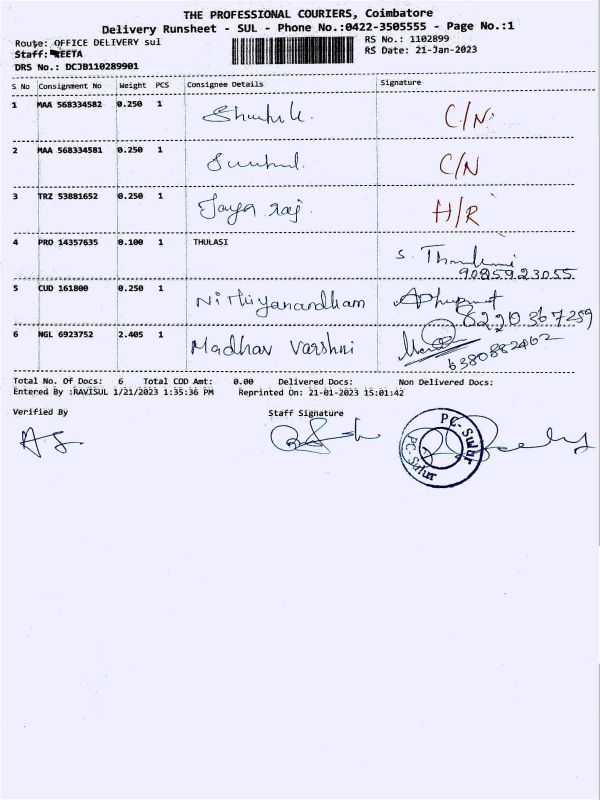 THE PROFESSIONAL COURIERS, Coimbatore
Delivery Runsheet - SUL - Phone No.:0422-3505555 - Page No.:1
Route: OFFICE DELIVERY sul
RS No.: 1102899
Staff: REETA
RS Date: 21-Jan-2023
DRS No.: DCJB110289901
S No Consignment No Weight PCS Consignee Details Signature
1 MAA 568334582 0.250 1 C/N
2 MAA 568334581 0.250 1 C/N
3 TRZ 53881652 0.250 1 Jaya raj H/R
4 PRO 14357635 0.100 1 THULASI S.
9085923055
5 CUD 161800 0.250 1 Nithiyanandham
8220367259
6 NGL 6923752 2.405 1 Madhav Varshni
6380882462
Total No. Of Docs: 6 Total COD Amt: 0.00 Delivered Docs: Non Delivered Docs:
Entered By :RAVISUL 1/21/2023 1:35:36 PM Reprinted On: 21-01-2023 15:01:42
Verified By Staff Signature
PC-Sulur
PC-Sulur